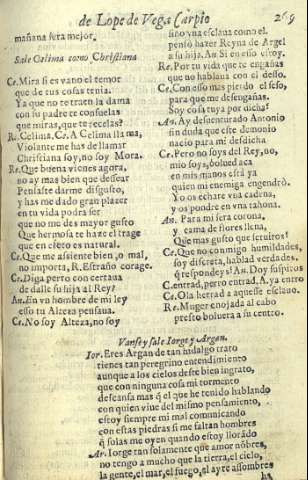 de Lope de Vega Carpio 269
mañana sera mejor.
Sale Celima como Christiana
Ce. Mira si es vano el temor
que de tus cosas tenia.
Ya que no te traen la dama
con su padre te consuelas
que miras, que te recelas?
R. Celima. Ce. A Celima llama,
Violante me has de llamar
Christiana soy, no soy Mora.
Re. Que buena vienes agora,
no ay mas bien que dessear
Pensaste darme disgusto,
y has me dado gran plazer
en tu vida podra ser
que no me des mayor gusto
Que hermosa te haze el trage
que en efeto es natural.
Ce. Que me assiente bien, o mal,
no importa, R. Estraño corage.
Ce. Diga perro con certana
de dalle su hija al Rey?
An. En vn hombre de mi ley
esso tu Alteza pensaua.
Ce. No soy Alteza, no soy
sino vna esclaua como el
pensò hazer Reyna de Argel
a su hija. An. Si en esso estoy.
Re. Por tu vida que te engañas
que no hablaua con el desso.
Ce. Con esso mas pierdo el seso,
para que me desengañas.
Soy cosa tuya por dicha?
An. Ay desuenturado Antonio
sin duda que este demonio
nacio para mi desdicha
Ce. Pero no soys del Rey, no,
mio soys, a bolued aca
en mis manos està ya
quien mi enemiga engendrò.
Yo os echare vna cadena,
y os pondre en vna tahona.
An. Para mi sera corona,
y cama de flores llena,
Que mas gusto que seruiros?
Ce. Que no con migo humildades,
soy discreta, hablad verdades.
q̃ respondeys? An. Doy suspiros
C. entrad, perro entrad, A. ya entro
Ce. Ola herrad a aquesse esclauo.
R. Muger enojada al cabo
presto boluera a su centro.
Vanse, y sale Iorge y Argan.
Ior. Eres Argan de tan hidalgo trato
tienes tan peregrino entendimiento
aunque a los cielos deste bien ingrato,
que con ninguna cosa mi tormento
descansa mas q̃ el que he tenido hablando
con quien viue del mismo pensamiento,
estoy siempre mi mal comunicando
con estas piedras si me faltan hombres
q̃ solas me oyen quando estoy llorãdo
Ar. Iorge tan solamente que amor nõbres,
no tengo a mucho que la tierra, el cielo,
la gente, el mar, el fuego, el ayre assombres